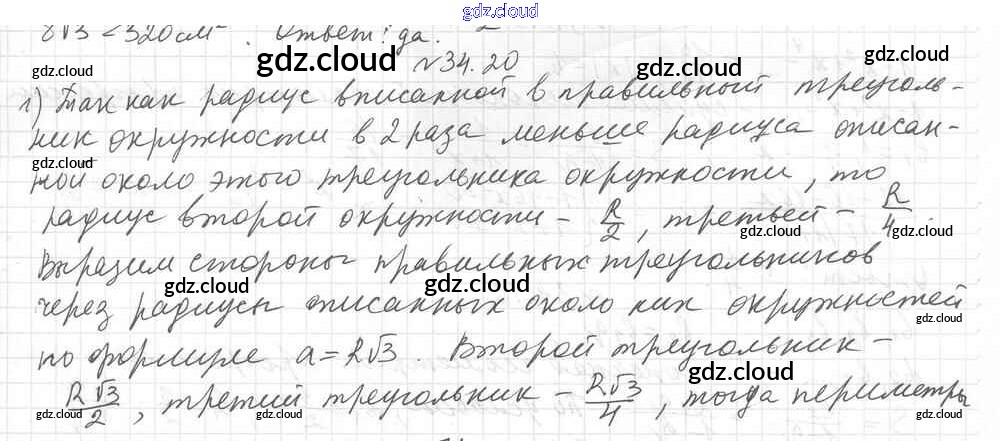 gdz.cloud
8√3 < 320 см². Ответ: да. 2
gdz.cloud gdz.cloud gdz.cloud
№34.20
1) Так как радиус вписанной в правильный треуголь-
ник окружности в 2 раза меньше радиуса описан-
gdz.cloud gdz.cloud gdz.cloud
ной около этого треугольника окружности, то
радиус второй окружности - R/2, третьей - R/4.
gdz.cloud gdz.cloud
Выразим стороны правильных треугольников
gdz.cloud gdz.cloud
через радиусы описанных около них окружностей
gdz.cloud
по формуле a = R√3. Второй треугольник -
gdz.cloud
R√3/2, третий треугольник - R√3/4, тогда периметры
gdz.cloud gdz.cloud gdz.cloud gdz.cloud